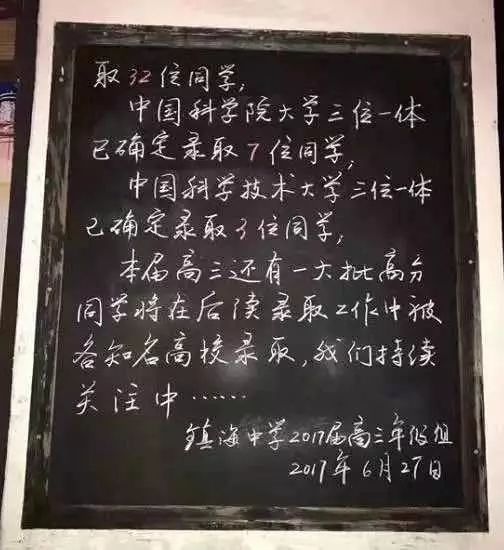 取32位同学,
中国科学院大学三位一体
已确定录取7位同学,
中国科学技术大学三位一体
已确定录取3位同学,
本届高三还有一大批高分
同学将在后续录取工作中被
各知名高校录取,我们持续
关注中……
镇海中学2017届高三年级组
2017年6月27日